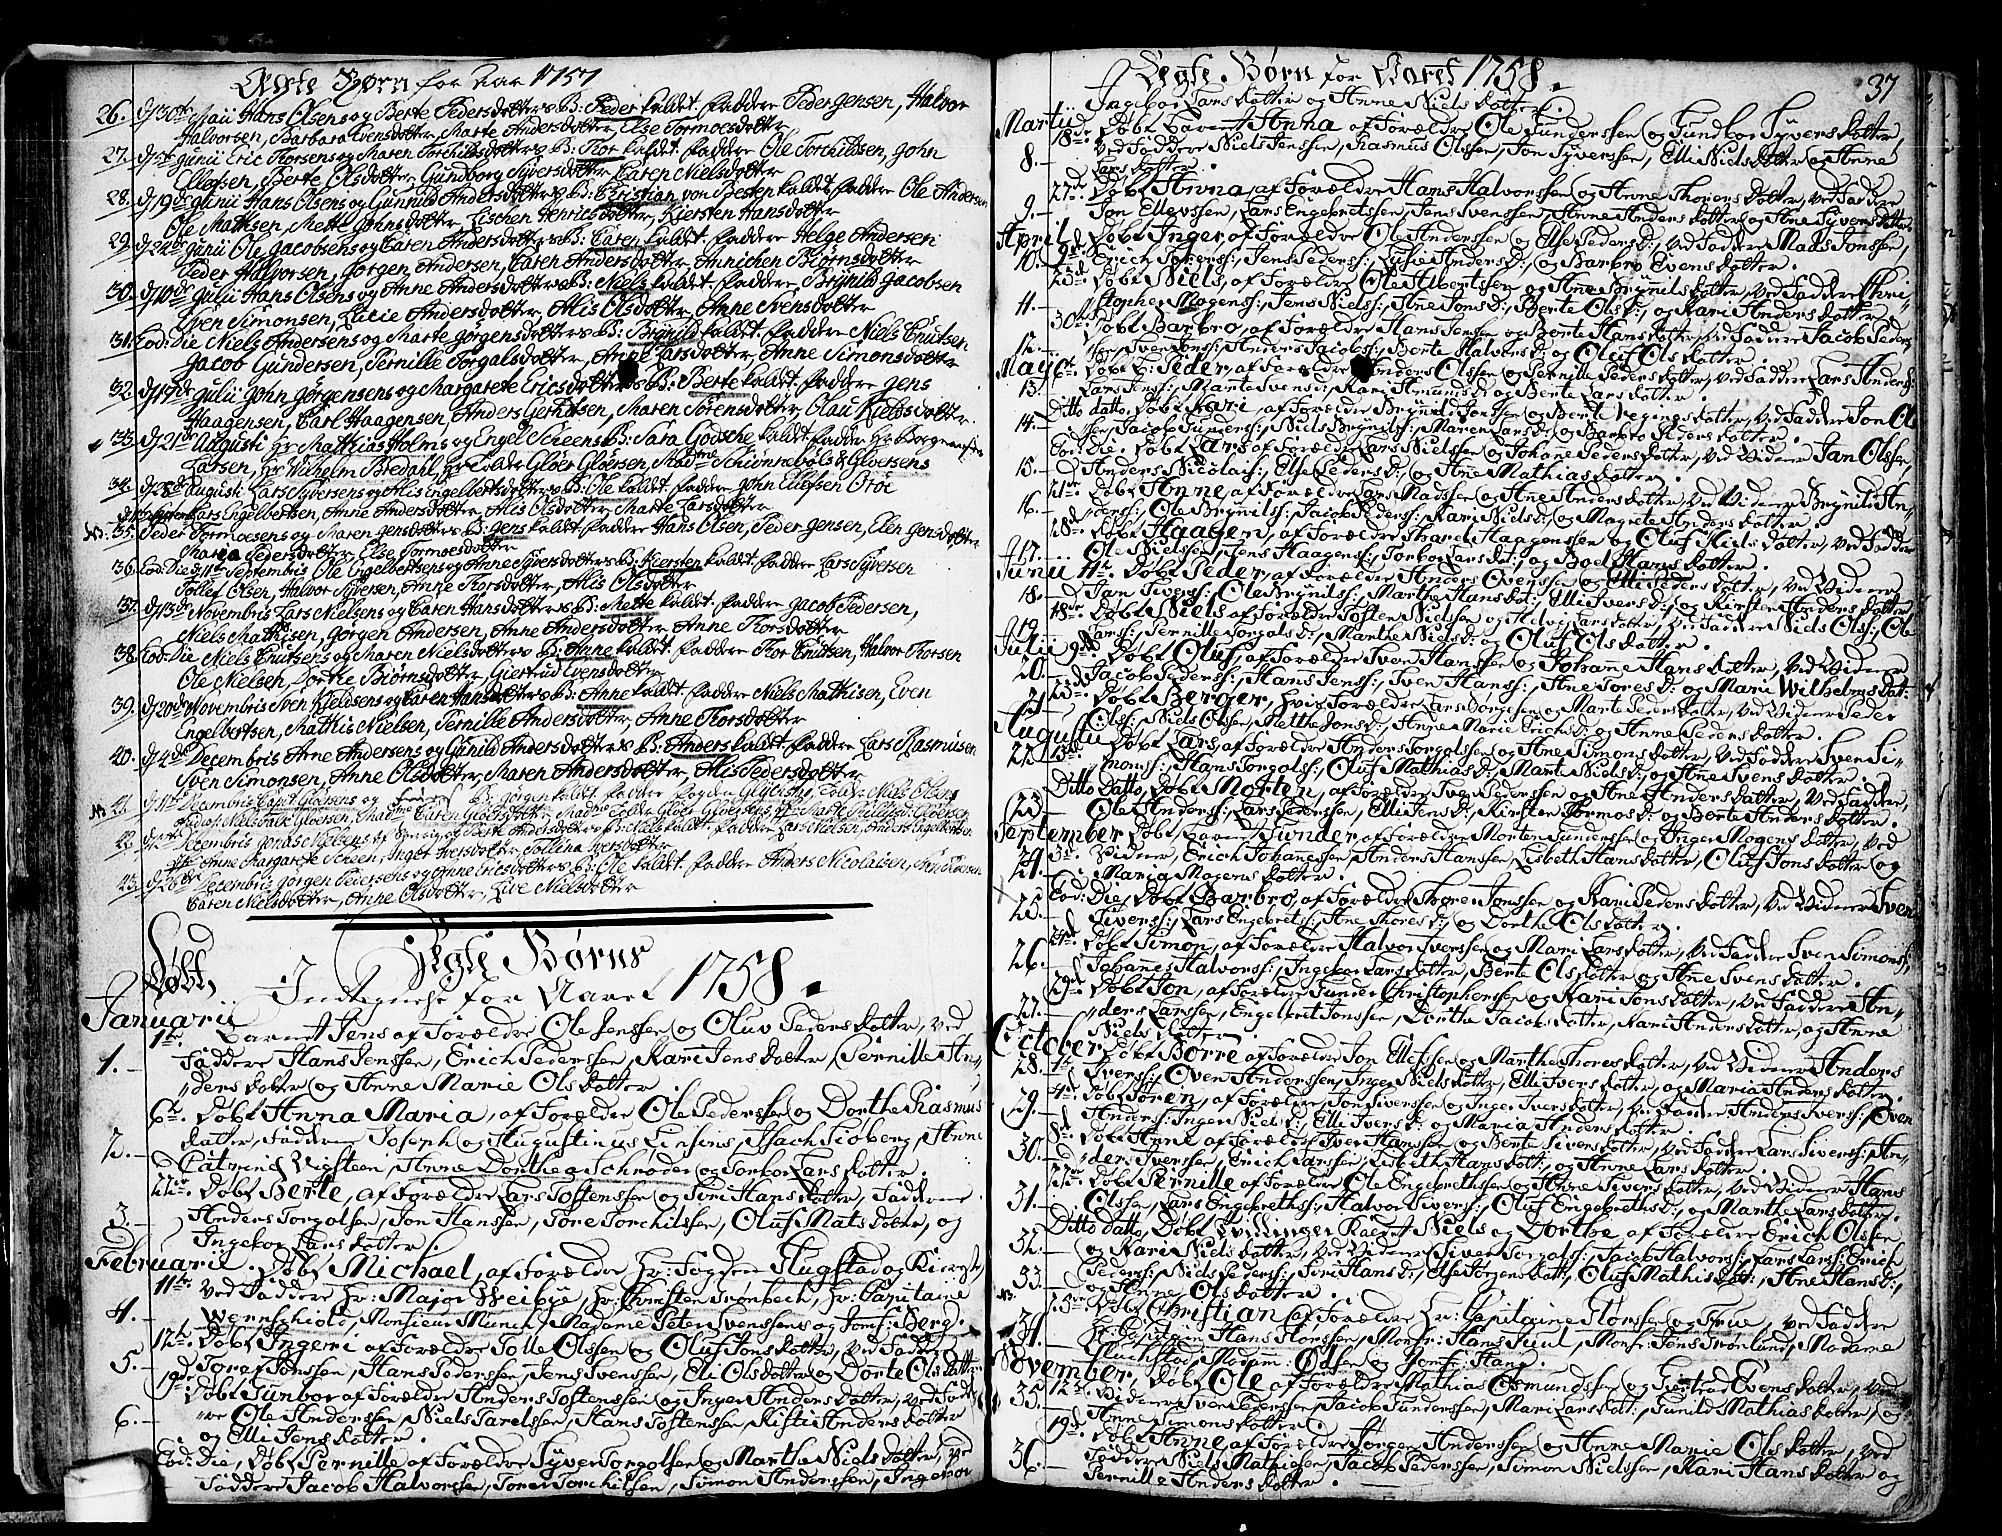 Ægte Børn for Aar 1757
26. d. 30de Maii Hans Olsens og Berte Pedersdotters B: Peder kaldet. Faddere Peder Jensen, Halvor
Halvorsen, Barbara Evensdotter, Marte Andersdotter, Else Tormoesdotter
27. Junii Eric Thorsens og Maren Torchildsdotters B: Thor kaldet. Faddere Ole Torchildsen, John
Ellefsen, Berte Olsdotter, Gundborg Syversdotter, Caren Nielsdotter
28. d. 19de Junii Hans Olsens og Gunnild Andersdotters B: Christian von Besten kaldet. Faddere Ole Andersen
Ole Mathsen, Mette Johnsdotter, Lischen Henricsdotter, Kiersten Hansdotter
29. d. 24de Junii Ole Jacobsens og Caren Andersdotters B: Caren kaldet. Faddere Helge Andersen
Peder Halvorsen, Jørgen Andersen, Caren Andersdotter, Annichen Biørnsdotter
30. d. 10de Julii Hans Olsens og Anne Andersdotters B: Niels kaldet. Faddere Brynild Jacobsen
Sven Simonsen, Lucie Andersdotter, Alis Olsdotter, Anne Svensdotter
31. Eod: Die Niels Andersens og Marte Jørgensdotters B: Brynild kaldet. Faddere Niels Cnutsen
Jacob Gundersen, Pernille Torgalsdotter, Anne Larsdotter, Anne Simonsdotter
32. d. 17de Julii John Jørgensens og Margarete Ericsdotters B: Berte kaldet. Faddere Jens
Haagensen, Carl Haagensen, Anders Gerhatsen, Maren Sørensdotter, Olau Nielsdotter
33. d. 21de Augusti Hr Matthias Holms og Engel Scheens B: Sara Godsche kaldet. Faddere Hr Borgemester
Larsen, Hr Wilhelm Bredahl, Hr Colde Gløer Gløersen, Madme Schiønnebøls & Gloersens
34. August: Lars Syversens og Alis Engelbertsdotters B: Ole kaldet. Faddere John Ellefsen Orøe
Lars Engelbertsen, Anne Andersdotter, Alis Olsdotter, Marte Larsdotter
35. Peder Tormoesens og Maren Jensdotters B: Jens kaldet. Faddere Hans Olsen, Peder Jensen, Elen Jensdotter
Maren Pedersdotter, Else Tormoesdotter
36. Eod: Die Septembris Ole Engelbertsens og Anne Syversdotters B: Kiersten kaldet. Faddere Lars Syversen
Tollef Olsen, Halvor Syversen, Anne Thorsdotter, Alis Olsdotter
37. d. 13de Novembris Lars Nielsens og Caren Hansdotters B: Mette kaldet. Faddere Jacob Pedersen,
Niels Mathisen, Jørgen Andersen, Anne Andersdotter, Anne Thorsdotter
38. Eod: Die Niels Cnutsens og Maren Nielsdotters B: Anne kaldet. Faddere Thor Cnutsen, Halvor Thorsen
Ole Nielsen, Dorthe Biørnsdotter, Giertrud Evensdotter
39. d. 20de Novembris Sven Kieldsens og Caren Hansdotters B: Anne kaldet. Faddere Niels Mathisen, Even
Engelbertsen, Mathis Nielsen, Pernille Andersdotter, Anne Thorsdotter
40. d. 4de Decembris Arne Andersens og Gunild Andersdotters B: Anders kaldet. Faddere Lars Rasmusen
Sven Simonsen, Anne Olsdotter, Maren Andersdotter, Alis Pedersdotter
Decembris Capt Gløersens og B: Jørgen kaldet. Faddere
Niels Falk Gloersen, Madme Caren Gloersens
Decembris Jonas Nielsens B: Niels kaldet. Faddere Lars Nielsen, Anders Engelbertsen
Anne Margarete Scheen, Inger Iversdotter
d. 26de Decembris Jørgen Pedersens og Anne Ericsdotters B: Ole kaldet. Faddere Anders Nicolaisen
Caren Nielsdotter, Anne Olsdotter, Live Nielsdotter
Ægte Børns
Døbt Indtegnelse for Aaret 1758.
Januarii
1te. Barnet Jens af Forældre Ole Jenssen og Oluv Peders dotter, ved
1. Faddere Hans Jenssen, Erich Pederssen, Kari Jens dotter, Pernille An=
ders dotter og Anne Marie Ols dotter
6te. Døbt Anna Maria, af Forældre Ole Pederssen og Dorthe Rasmus
2. datter, Fadderne Joseph og Augustinus Linsens, Isach Siøberg, Anne
Catrine Vigsteen, Anne Dorthea Schrøder og Torbor Lars dotter.
22de. Døbt Berte, af Forældre Lars Tostenssen og Siri Hans dotter, Fadderne
3. Anders Torgolsen, Jon Hanssen, Tore Torchilssen, Oluf Mats dotter, og
Ingebor Lars dotter.
Februarii. Døbt Michael, af Forældre Hr: Fogden Flugstad og Kiereste,
11te. ved Faddere Hr: Major Weibye, Hr: Christen Trønbech, Hr: Capitaine
4. Wernschiold, Monsieur Munch, Madame Peter Svenssens og Jomf: Berg.
12te. Døbt Ingeri af Forældre Tolle Olssen og Oluf Jons dotter, ved Faddere
5. Tore Jonssen, Hans Pederssen, Jens Svenssen, Eli Ols dotter og Dorte Ols datter
19de. Døbt Gunbor af Forældre Anders Tostenssen og Inger Anders dotter, ved Fadde=
6. re Ole Anderssen, Niels Tarelssen, Hans Tostenssen, Kisti Anders dotter
og Elli Jens dotter.
Eod: Die, Døbt Pernille af Forældre Syver Torgolssen og Marthe Niels dotter, ved
Faddere Jacob Halvorssen, Toren Torchilsen, Simon Anderssen, Ingebor
Ægte Børn for Aaret 1758.
37
Ingebor Lars dotter og Anne Niels dotter.
Martii
18de. Døbt Barnet Anna af Forældre Ole Gunderssen og Gundbor Syvers dotter,
8. ved Faddere Niels Jenssen, Rasmus Olssen, Jon Syverssen, Elli Niels dotter og Anne
Lars dotter.
27de. Døbt Anna, af Forældre Hans Halvorssen og Anne Thores dotter, ved Faddere
9. Jon Ellevssen, Lars Engebretssen, Jens Svenssen, Anne Anders dotter og Ane Syvers datter.
April Døbt Inger, af Forældre Ole Anderssen og Else Peders d:, ved Faddere Mads Jonssen,
10. 9de Erich, Jens Pederss:, Anders d: og Barbro Evens dotter.
23de. Døbt Niels, af Forældre Ole Albertssen og Ane Brynils dotter, ved Faddere Chri=
11. stopher Mogenss:, Jens Nielss:, Ane Jons d:, Berte Ols d: og Kari Anders dotter.
30de. Døbt Barbro, af Forældre Hans Jenssen og Berte Hans dotter, ved Faddere Jacob Peders
12. sen, Sven Jonss:, Anders Jacobss:, Berte Halvors d: og Oluf Ols dotter.
May 6te. Døbt B: Peder, af Forældre Anders Olssen og Pernille Peders dotter, ved Faddere Lars Anderss:
13. Lars Jenss:, Marte Svens d:, Kari Amunds d: og Berte Lars dotter.
Ditto datto. Døbt Kari, af Forældre Brynild Jonssen og Berte dotter, ved Faddere Jon Ol=
14. sen, Jacob, Niels Brynilss:, Maren Lars d: og Barbro Peders dotter.
Eod: Die. Døbt Lars af Forældre Lars Nielssen og Johane Peders dotter, ved Vidner Jan Olssen,
15. Anders Nicolaiss:, Else Peders d: og Ane Mathias dotter.
21de. Døbt Anne, af Forældre Lars Madssen og Ane Anders dotter, ved Vidner Brynild An=
16. derss:, Ole Brynilss:, Jacob Pederss:, Kari Niels d: og Magrete Anders dotter.
28de. Døbt Haagen, af Forældre Haagenssen og Oluf Niels dotter, ved Faddere
17. Ole Nielssen, Jens Haagenss:, Torbor Lars d: og Bod Hans dotter.
Junii 11te. Døbt Peder, af Forældre Anders Ovenssen og Elli Peders dotter, ved Vidner
18. Jan Siverss:, Ole Brynilss:, Marthe Hans dot:, Elli Ivers d: og Kirsten Anders dotter
18de. Døbt Niels af Forældre Tosten Nielssen og Helvig Lars dotter, ved Faddere Niels Olss:, Ole
19. Larss:, Pernille Torgals d:, Marthe Niels d: og Oluf Ols dotter.
Julii 9de. Døbt Oluf, af Forældre Sven Hanssen og Johane Hans dotter, ved Vidner
20. Jacob Pederss:, Hans Jenss:, Sven Hanss:, Ane Tores d: og Mari Wilhelms dot:
23de. Døbt Berger, hvis Forældre Lars og Marte Peders dotter, ved Vidner Peder
21. Olss:, Niels Olssen, Metthe Jons d:, Anne Marie Erichs d: og Anne Peders dotter.
Augustii Døbt Lars af Forældre Anders Torgolssen og Ane Simons dotter, ved Faddere Sven Si=
22. 13de. monss:, Hans Torgolss:, Oluf Mathias d:, Marte Niels d: og Ane Svens dotter.
Ditto datto, Døbt Morten, af Forældre Iver Pederssen og Ane Anders dotter, ved Faddere,
23. Ole Anderss:, Lars Pederssen, Elli Jens d:, Kirsten Tormos d: og Berte Anders dotter.
September Døbt Barnet Gunder, af Forældre Morten Gunderssen og Inger Mogens dotter, ved
24. 3de. Vidner, Erich Johanessen, Anders Hanssen, Lisbeth Hans dotter, Oluf Jons dotter og
Maria Mogens dotter.
Eod: Die, Døbt Barbro, af Forældre Thore Jonssen og Kari Peders dotter, ved Vidner Sven
25. Siverss:, Lars Engebretss:, Ane Thores d: og Dorthe Ols dotter.
24de. Døbt Simon, af Forældre Halvor Iverssen og Mari Lars dotter, ved Faddere Sven Simonss:,
26. Johanes Halvorss:, Ingebor Lars dotter, Berte Ols dotter og Ane Svens dotter.
29de. Døbt Jon, af Forældre Gunder Christopherssen og Kari Jons dotter, ved Faddere An=
27. ders Larssen, Engebret Jonssen, Dorthe Jacobs dotter, Kari Anders dotter, og Anne
Niels dotter.
October Døbt Børre af Forældre Jon Ellefssen og Marthe Thores dotter, ved Vidner Anders
28. 1te. Iverss:, Oven Anderssen, Inger Niels dotter, Elli Ivers dotter, og Maria Anders dotter.
4de. Døbt Søren, af Forældre Jon Siverssen og Inger Ivers dotter, ved Faddere Anders Iverss:, Oven
29. Anderss:, Inger Niels d:, Elli Ivers d: og Maria Anders dotter.
8de. Døbt Anne, af Forældre Iver Hanssen og Berte Sivers dotter, ved Faddere Lars Siverss:, An=
30. ders Iverssen, Erich Larssen, Lisbeth Hans dot:, og Anne Lars dotter.
Døbt Pernille af Forældre Ole Engebrethssen og Anne Sivers dotter, ved Vidner Hans
31. Olssen, Lars Engebrethss:, Halvor Siverss:, Oluf Engebreths d:, og Marthe Lars dotter.
Ditto datto, Døbt Tvillinger Kaldet Niels og Dorthe, af Forældre Erich Olssen
32. og Kari Niels dotter, ved Vidner Siver Torgalss:, Jacob Halvorss:, Lars Larss:, Erich
33. Pederss:, Niels Pederss:, Siri Hans d:, Else Jørgens dott:, Oluf Mathis dot:, Ane Hans d:,
og Anne Ols dotter.
15de. Døbt Christian af Forældre Hr: Capitaine Florssen og Frue, ved Faddere
34. Hr: Capitain Hans Florssen, Monsr: Hans Juul, Monsr: Jens Trønlund, Madame
Fluchstad, Madam: Ødsen og Jomf: Hans.
November, Døbt Ole af Forældre Mathias Osmundssen og Giertrud Evens dotter, ved
35. 12te. Vidner Iver Pederssen, Jacob Gunderssen, Mari Lars dot:, Gunild Mathias dotter, og
Anne Simons dotter.
19de. Døbt Anne af Forældre Jørgen Anderssen og Anne Marie Ols dotter, ved
36. Faddere Niels Mathiesen, Jacob Pederssen, Simon Nielssen, Kari Hans dotter og
Pernille Anders dotter.